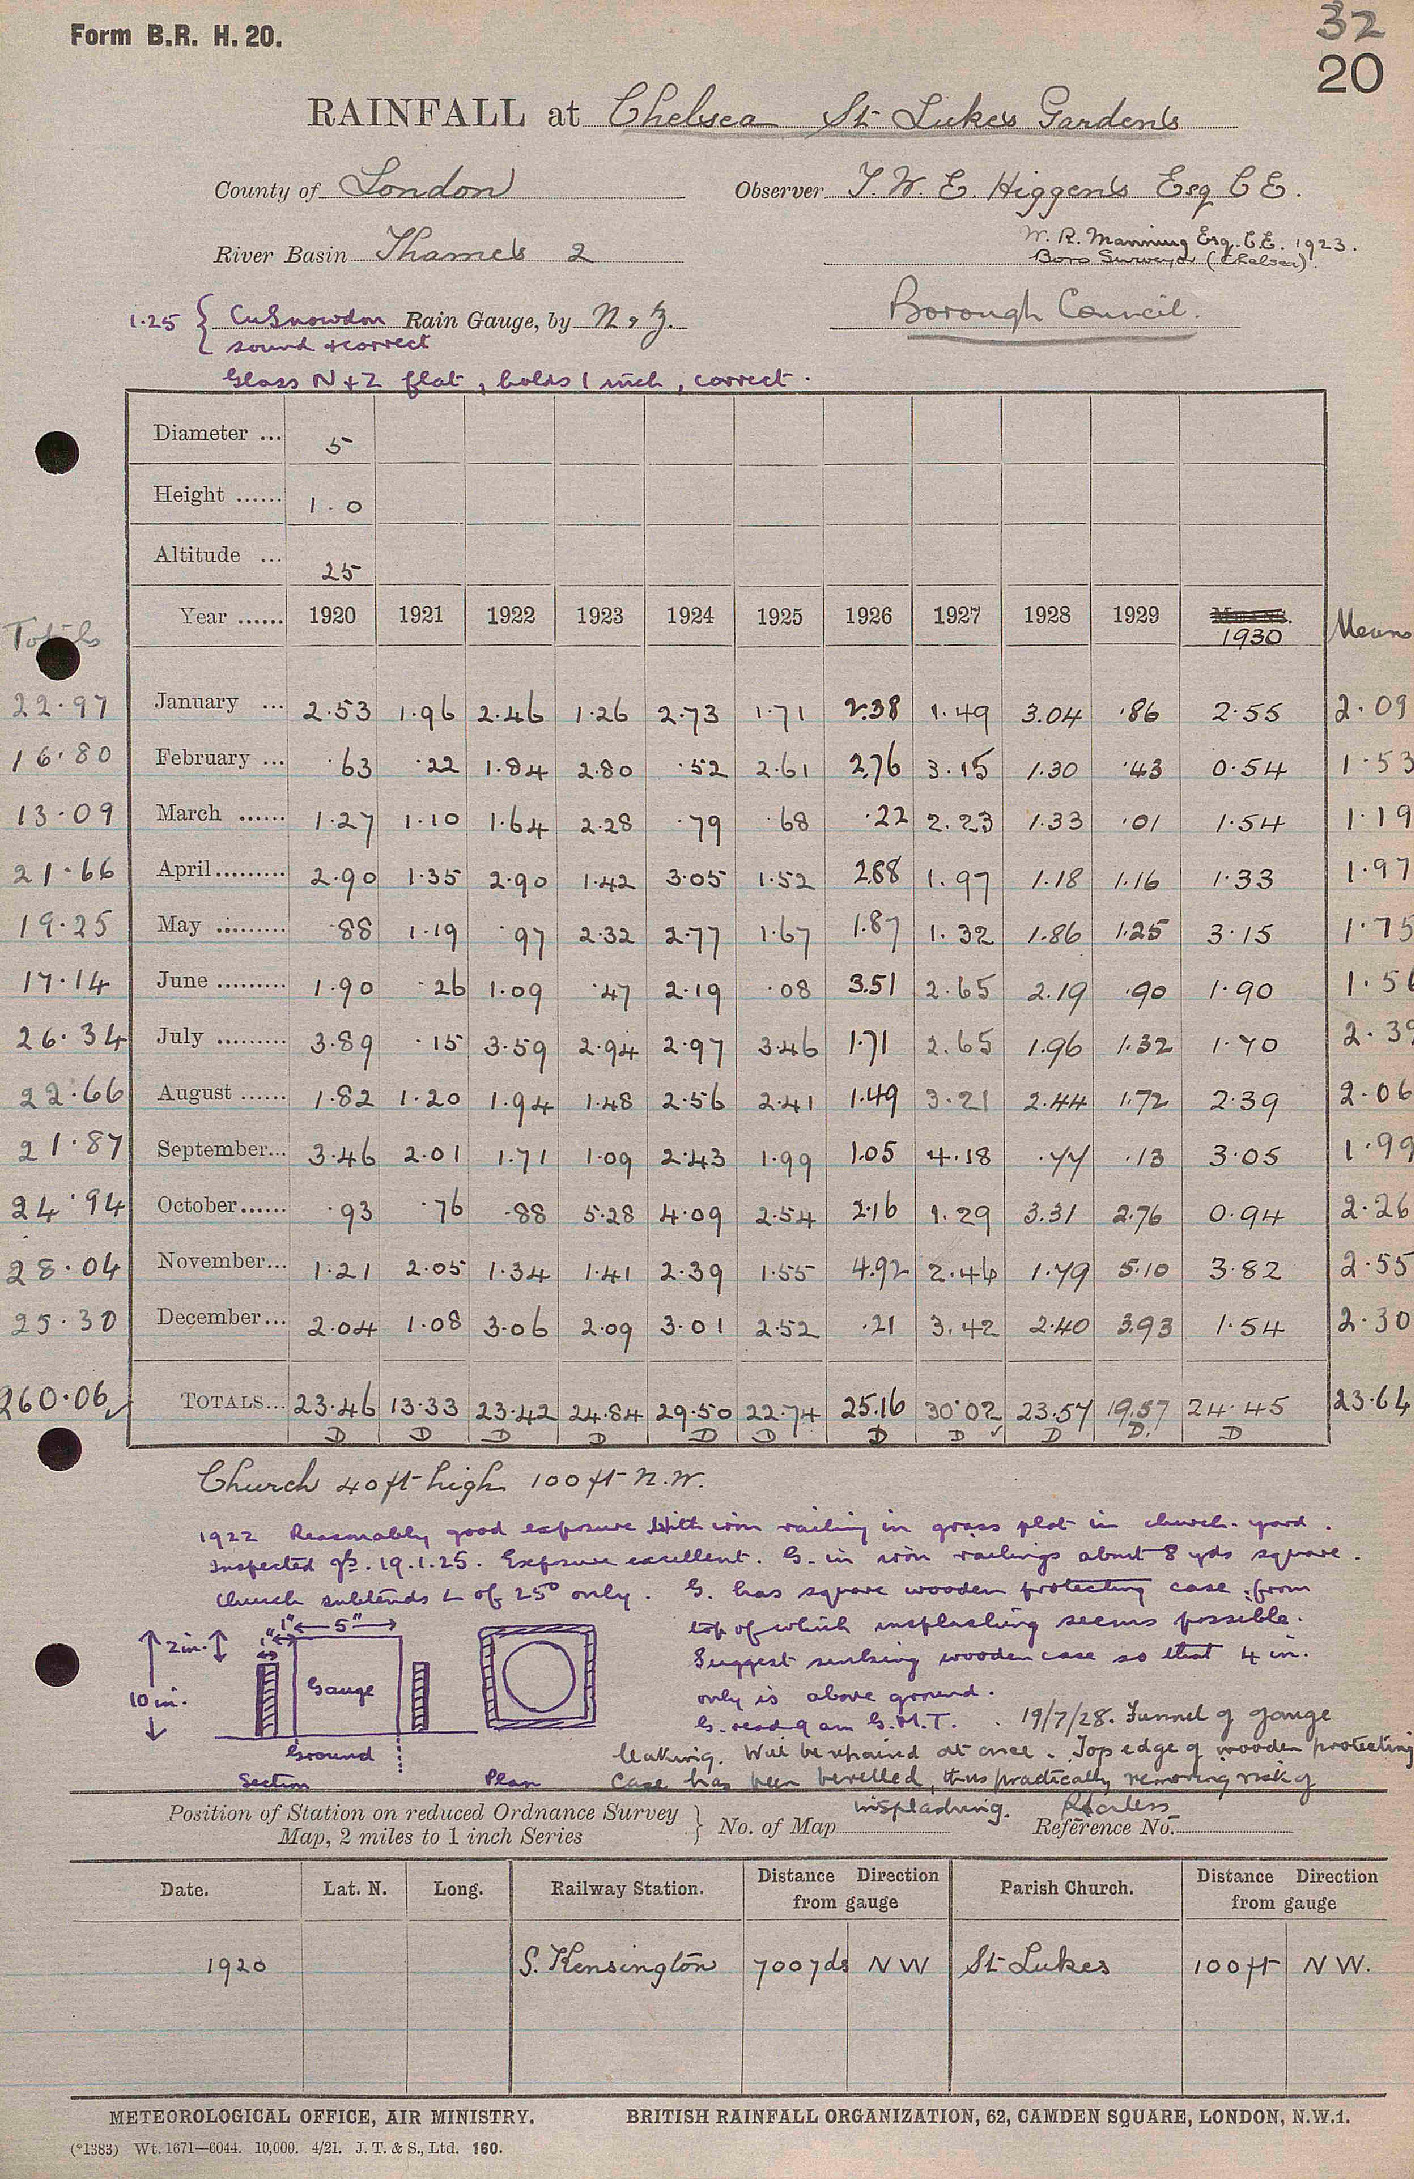 Form B.R. H. 20.
32
20
RAINFALL at Chelsea St Lukes Gardens
County of London Observer T. W. E. Higgens Esq C E.
W. R. Manning Esq. C.E. 1923.
River Basin Thames 2 Boro Surveyor (Chelsea).
1.25 { Cu Snowdon Rain Gauge, by N & Z. Borough Council.
sound & correct
Glass N & Z flat, holds 1 inch, correct.
Diameter ... 5
Height ...... 1.0
Altitude ... 25
Totals Year ...... 1920 1921 1922 1923 1924 1925 1926 1927 1928 1929 1930 Means
22.97 January ... 2.53 1.96 2.46 1.26 2.73 1.71 2.38 1.49 3.04 .86 2.55 2.09
16.80 February ... .63 .22 1.84 2.80 .52 2.61 2.76 3.15 1.30 .43 0.54 1.53
13.09 March ...... 1.27 1.10 1.64 2.28 .79 .68 .22 2.23 1.33 .01 1.54 1.19
21.66 April......... 2.90 1.35 2.90 1.42 3.05 1.52 2.88 1.97 1.18 1.16 1.33 1.97
19.25 May ......... .88 1.19 .97 2.32 2.77 1.67 1.87 1.32 1.86 1.25 3.15 1.75
17.14 June ......... 1.90 .26 1.09 .47 2.19 .08 3.51 2.65 2.19 .90 1.90 1.56
26.34 July ......... 3.89 .15 3.59 2.94 2.97 3.46 1.71 2.65 1.96 1.32 1.70 2.39
22.66 August ...... 1.82 1.20 1.94 1.48 2.56 2.41 1.49 3.21 2.44 1.72 2.39 2.06
21.87 September... 3.46 2.01 1.71 1.09 2.43 1.99 1.05 4.18 .77 .13 3.05 1.99
24.94 October...... .93 .76 .88 5.28 4.09 2.54 2.16 1.29 3.31 2.76 0.94 2.26
28.04 November... 1.21 2.05 1.34 1.41 2.39 1.55 4.92 2.46 1.79 5.10 3.82 2.55
25.30 December... 2.04 1.08 3.06 2.09 3.01 2.52 .21 3.42 2.40 3.93 1.54 2.30
260.06 TOTALS... 23.46 13.33 23.42 24.84 29.50 22.74 25.16 30.02 23.57 19.57 24.45 23.64
D D D D D D D D D D. D
Church 40 ft high 100 ft N.W.
1922 Reasonably good exposure with iron railing in grass plot in church-yard.
Inspected 19.1.25. Exposure excellent. G. in iron railings about 8 yds square.
Church subtends ∠ of 25° only. G. has square wooden protecting case, from
top of which insplashing seems possible.
Suggest sinking wooden case so that 4 in.
only is above ground.
G. read 9 am G.M.T.
2 in. 1" 1" 5"
10 in. Gauge
Ground
Section Plan
19/7/28. Funnel of gauge
leaking. Will be repaired at once. Top edge of wooden protecting
case has been bevelled, thus practically removing risk of
insplashing.
Position of Station on reduced Ordnance Survey
Map, 2 miles to 1 inch Series } No. of Map Reference No.
Date. Lat. N. Long. Railway Station. Distance Direction from gauge Parish Church. Distance Direction from gauge
1920 S. Kensington 700 yds N W St Lukes 100 ft N W.
METEOROLOGICAL OFFICE, AIR MINISTRY. BRITISH RAINFALL ORGANIZATION, 62, CAMDEN SQUARE, LONDON, N.W.1.
(*1383) Wt. 1671—6044. 10,000. 4/21. J. T. & S., Ltd. 160.